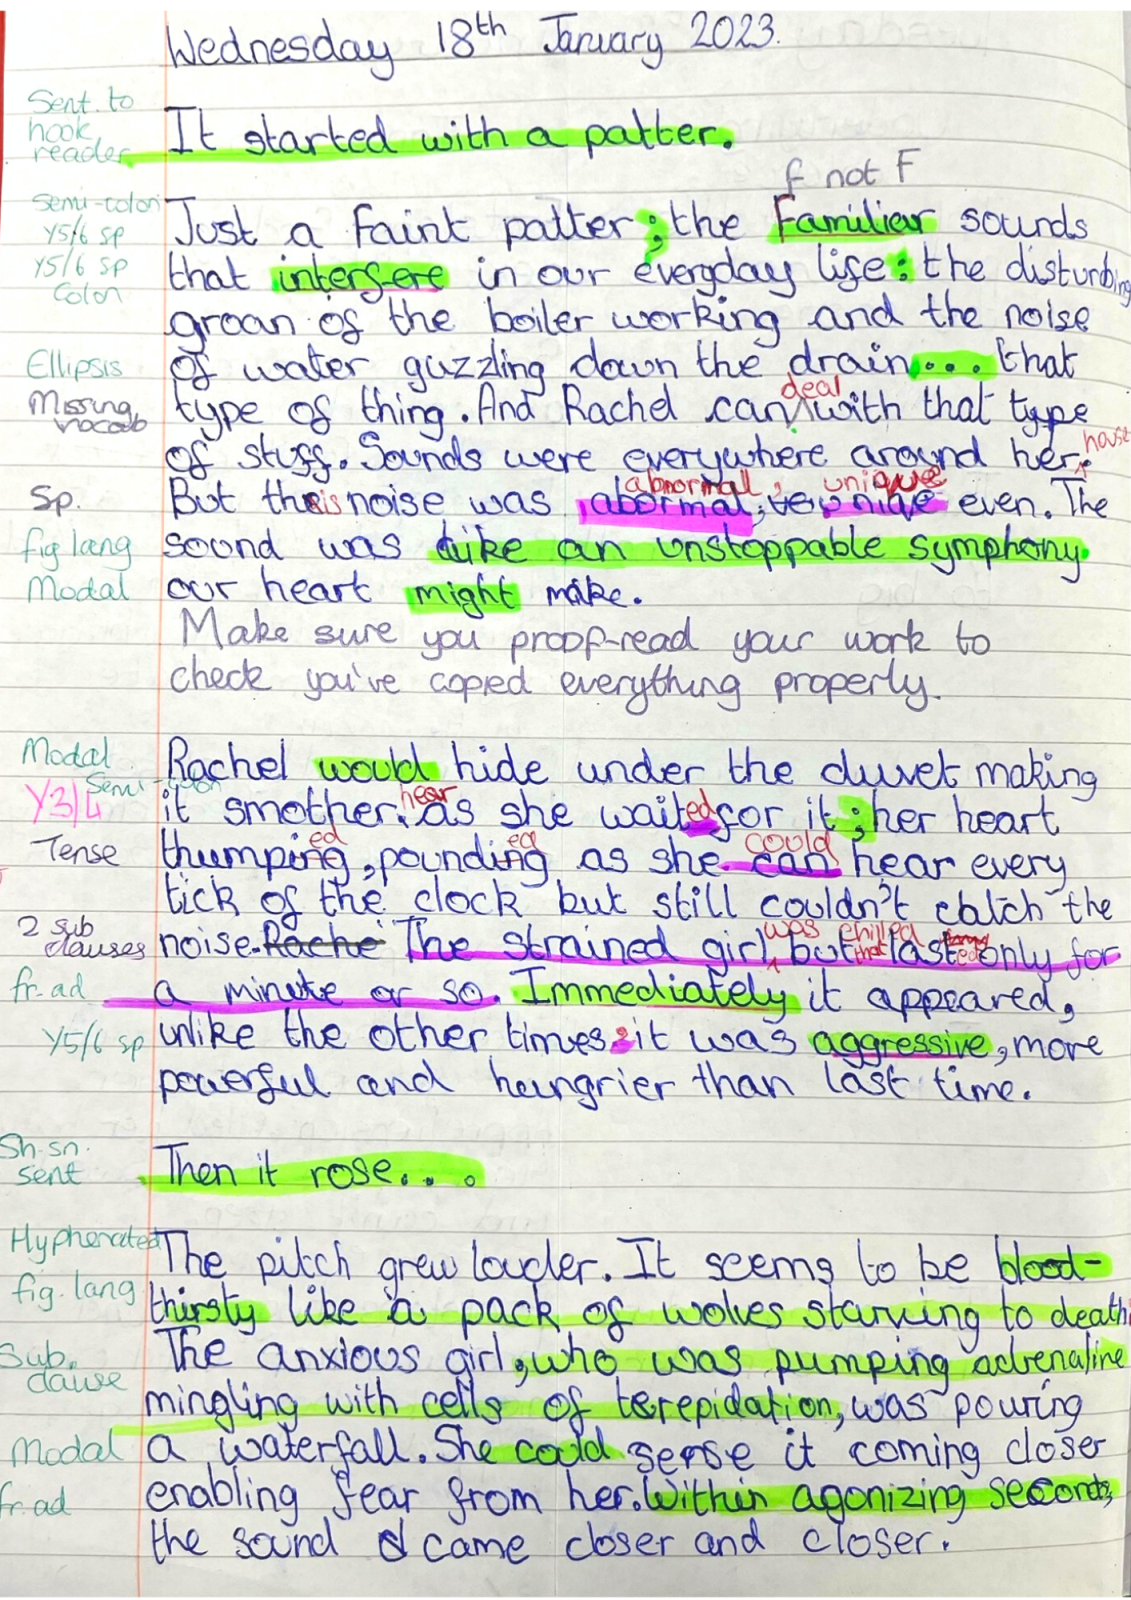 Wednesday 18th January 2023.
Sent. to
hook
reader
It started with a patter.
f not F
Semi-colon
Y5/6 sp
Y5/6 sp
Colon
Just a Faint patter; the Familier sounds
that intersere in our everyday lise: the disturbing
groan of the boiler working and the noise
Ellipsis
of water guzzling down the drain... that
deal
Missing
vocab
type of thing. And Rachel can with that type
of stuff. Sounds were everywhere around her.
house
abnormal, unique
Sp.
But this noise was abormal, even. The
fig lang
sound was like an unstoppable symphony
Modal
our heart might make.
Make sure you proof-read your work to
check you've copied everything properly.
Modal
Rachel would hide under the duvet making
Semi-colon
Y3/4
hear
it smother. as she waited for it; her heart
ed ed could
Tense
thumping, pounding as she can hear every
tick of the clock but still couldn't catch the
was chilled
2 sub
clauses
noise. Rache The strained girl, but that lasted only for
fr. ad
a minute or so. Immediately it appeared,
Y5/6 sp
unlike the other times: it was aggressive, more
powerful and hungrier than last time.
Sh. sn.
sent
Then it rose...
Hyphenated
The pitch grew louder. It seems to be blood-
fig. lang
thirsty like a pack of wolves starving to death
Sub.
clause
The anxious girl, who was pumping adrenaline
mingling with cells of terepidation, was pouring
Modal
a waterfall. She could sense it coming closer
fr. ad
enabling fear from her. Within agonizing seconds,
the sound came closer and closer.